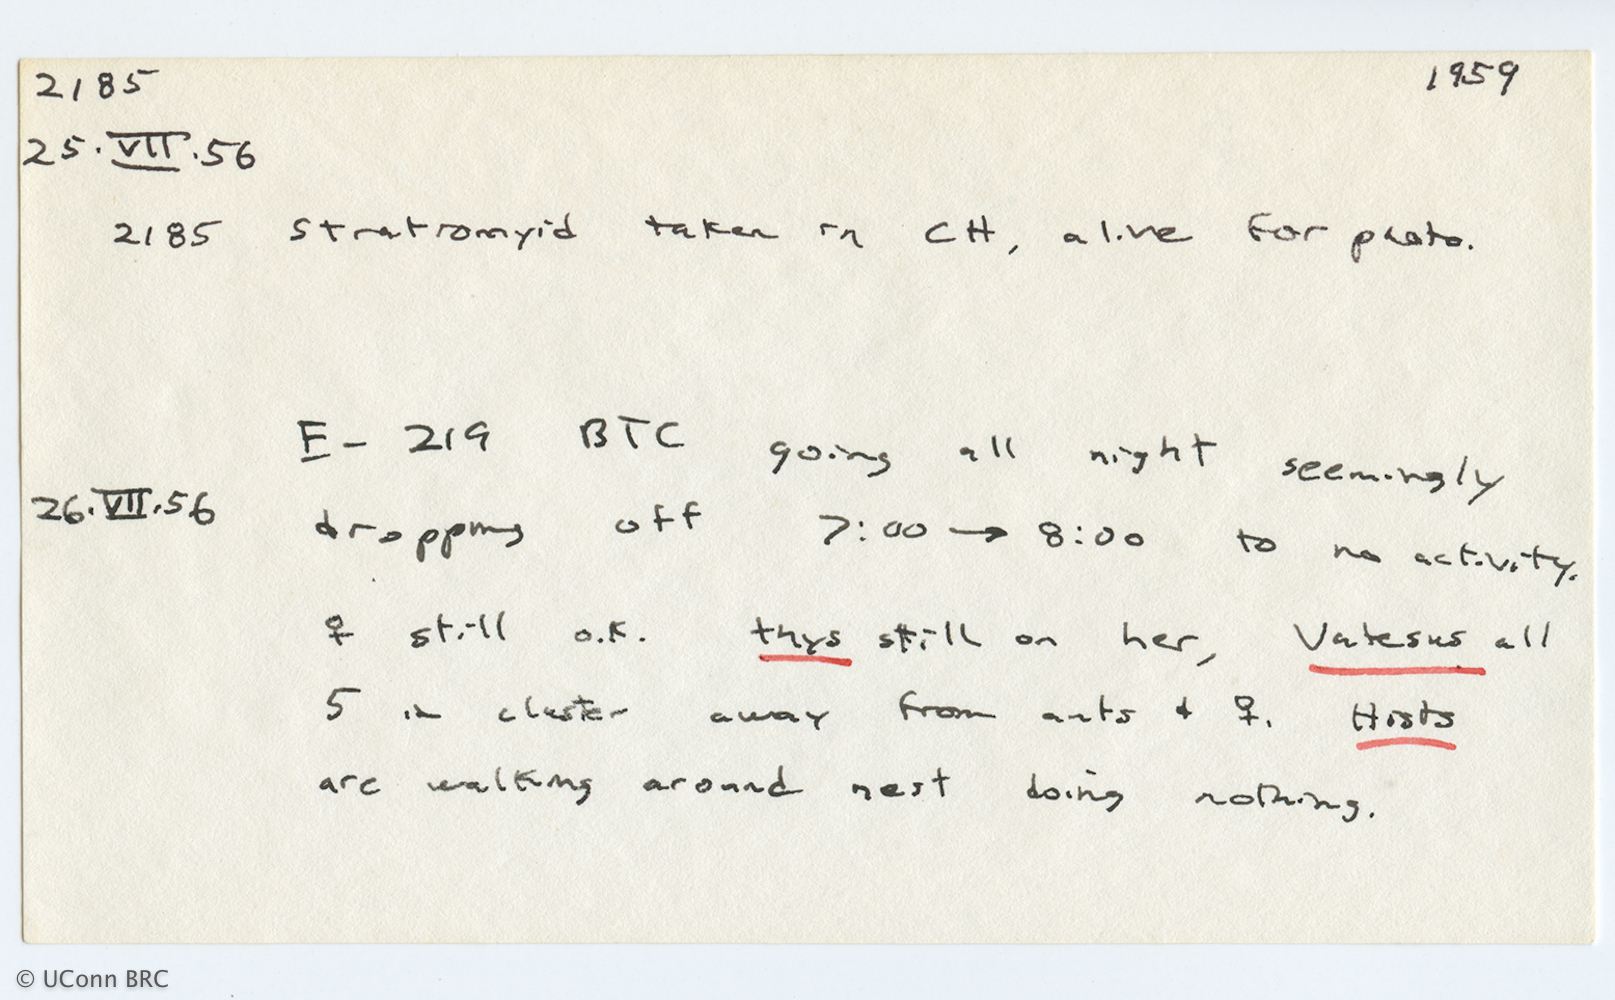 2185 1959
25.VII.56
2185 Stratiomyid taken in CH, alive for photo.
E-219 BTC going all night seemingly
26.VII.56 dropping off 7:00 → 8:00 to no activity.
♀ still o.k. thys still on her, Vatesus all
5 in cluster away from ants + ♀. Hists
are walking around nest doing nothing.
© UConn BRC